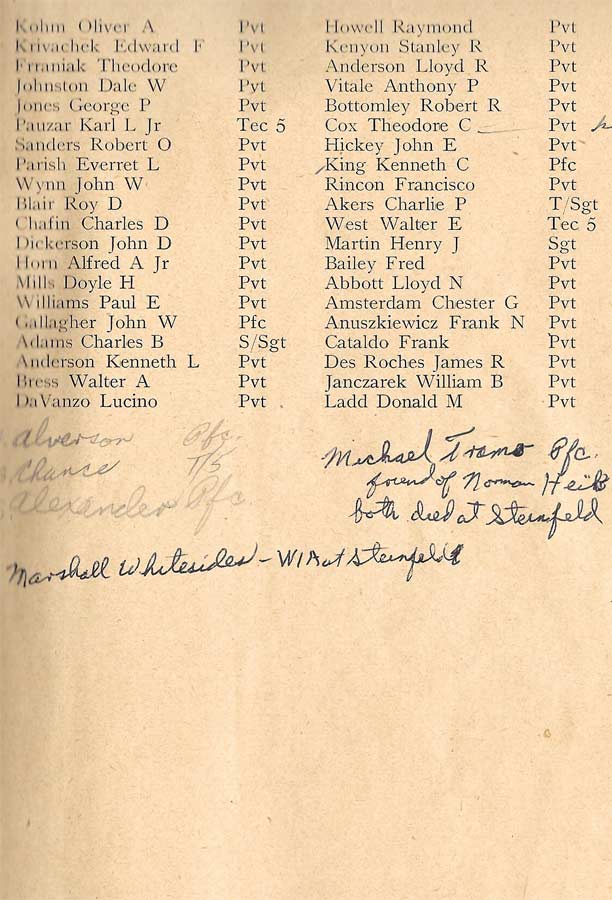 Kohm Oliver A Pvt
Krivachek Edward F Pvt
Frraniak Theodore Pvt
Johnston Dale W Pvt
Jones George P Pvt
Pauzar Karl L Jr Tec 5
Sanders Robert O Pvt
Parish Everret L Pvt
Wynn John W Pvt
Blair Roy D Pvt
Chafin Charles D Pvt
Dickerson John D Pvt
Horn Alfred A Jr Pvt
Mills Doyle H Pvt
Williams Paul E Pvt
Gallagher John W Pfc
Adams Charles B S/Sgt
Anderson Kenneth L Pvt
Bress Walter A Pvt
DaVanzo Lucino Pvt
Alverson Pfc.
Chance T/5
Alexander Pfc
Howell Raymond Pvt
Kenyon Stanley R Pvt
Anderson Lloyd R Pvt
Vitale Anthony P Pvt
Bottomley Robert R Pvt
Cox Theodore C Pvt
Hickey John E Pvt
King Kenneth C Pfc
Rincon Francisco Pvt
Akers Charlie P T/Sgt
West Walter E Tec 5
Martin Henry J Sgt
Bailey Fred Pvt
Abbott Lloyd N Pvt
Amsterdam Chester G Pvt
Anuszkiewicz Frank N Pvt
Cataldo Frank Pvt
Des Roches James R Pvt
Janczarek William B Pvt
Ladd Donald M Pvt
Michael Tramo Pfc.
friend of Norman
both died at Steinfeld
Marshall Whitesides - WIA at Steinfeld